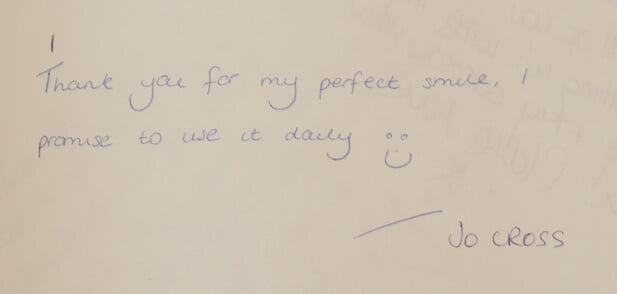 Thank you for my perfect smile. I
promise to use it daily
JO CROSS